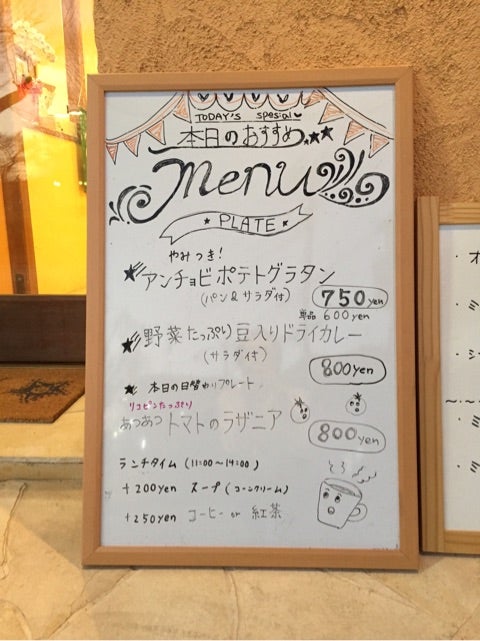 TODAY's spesial
本日のおすすめ
menu
PLATE
やみつき!
アンチョビポテトグラタン
(パン&サラダ付)
750yen
単品 600yen
野菜たっぷり豆入りドライカレー
(サラダ付)
800yen
本日の日替わりプレート
リコピンたっぷり
あつあつトマトのラザニア
800yen
ランチタイム (11:00〜14:00)
+200yen スープ(コーンクリーム)
+250yen コーヒー or 紅茶